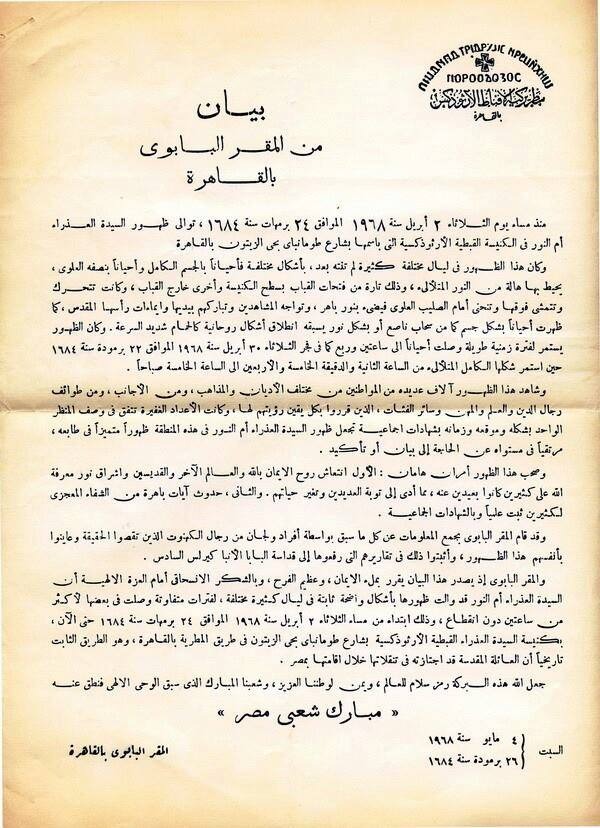 ΠΟΡΘΟΔΟΞΟΣ
بطريركية الاقباط الأرثوذكس
بالقاهرة
بيان
من المقر البابوى
بالقاهرة
منذ مساء يوم الثلاثاء ٢ أبريل سنة ١٩٦٨ الموافق ٢٤ برمهات سنة ١٦٨٤ ، توالى ظهور السيدة العذراء
أم النور فى الكنيسة القبطية الأرثوذكسية التى باسمها بشارع طومانباى بحى الزيتون بالقاهرة
وكان هذا الظهور فى ليال مختلفة كثيرة لم تنته بعد ، بأشكال مختلفة فأحياناً بالجسم الكامل وأحياناً بنصفه العلوى ،
يحيط بها هالة من النور المتلألىء ، وذلك تارة من فتحات القباب بسطح الكنيسة وأخرى خارج القباب ، وكانت تتحرك
وتتمشى فوقها وتنحنى أمام الصليب العلوى فيضىء بنور باهر ، وتواجه المشاهدين وتباركهم بيديها وايماءات رأسها المقدس ، كما
ظهرت أحياناً بشكل جسم كما من سحاب ناصع أو بشكل نور يسبقه انطلاق أشكال روحانية كالحمام شديد السرعة . وكان الظهور
يستمر لفترة زمنية طويلة وصلت أحياناً الى ساعتين وربع كما فى فجر الثلاثاء ٣٠ أبريل سنة ١٩٦٨ الموافق ٢٢ برمودة سنة ١٦٨٤
حين استمر شكلها الكامل المتلألىء من الساعة الثانية والدقيقة الخامسة والأربعين الى الساعة الخامسة صباحاً .
وشاهد هذا الظهور آلاف عديده من المواطنين من مختلف الأديان والمذاهب ، ومن الأجانب ، ومن طوائف
رجال الدين والعلم والمهن وسائر الفئات ، الذين قرروا بكل يقين رؤيتهم لها ، وكانت الأعداد الغفيرة تتفق فى وصف المنظر
الواحد بشكله وموقعه وزمانه بشهادات اجماعية تجعل ظهور السيدة العذراء أم النور فى هذه المنطقة ظهوراً متميزاً فى طابعه ،
مرتقياً فى مستواه عن الحاجة إلى بيان أو تأكيد .
وصحب هذا الظهور أمران هامان : الأول انتعاش روح الايمان بالله والعالم الآخر والقديسين واشراق نور معرفة
الله على كثيرين كانوا بعيدين عنه ، مما أدى إلى توبة العديدين وتغير حياتهم . والثانى ، حدوث آيات باهرة من الشفاء المعجزى
لكثيرين ثبت علمياً وبالشهادات الجماعية .
وقد قام المقر البابوى بجمع المعلومات عن كل ما سبق بواسطة أفراد ولجان من رجال الكهنوت الذين تقصوا الحقيقة وعاينوا
بأنفسهم هذا الظهور ، وأثبتوا ذلك فى تقاريرهم التى رفعوها إلى قداسة البابا الأنبا كيرلس السادس .
والمقر البابوى إذ يصدر هذا البيان يقرر بملء الايمان ، وعظيم الفرح ، وبالشكر الانسحاقى أمام العزة الالهية أن
السيدة العذراء أم النور قد والت ظهورها بأشكال واضحة ثابتة فى ليال كثيرة مختلفة ، لفترات متفاوتة وصلت فى بعضها لأكثر
من ساعتين دون انقطاع ، وذلك ابتداء من مساء الثلاثاء ٢ أبريل سنة ١٩٦٨ الموافق ٢٤ برمهات سنة ١٦٨٤ حتى الآن ،
بكنيسة السيدة العذراء القبطية الأرثوذكسية بشارع طومانباى بحى الزيتون فى طريق المطرية بالقاهرة ، وهو الطريق الثابت
تاريخياً أن العائلة المقدسة قد اجتازته فى تنقلاتها خلال اقامتها بمصر .
جعل الله هذه البركة رمز سلام للعالم ، ويمن لوطننا العزيز ، وشعبنا المبارك الذى سبق الوحى الالهى فنطق عنه
« مبارك شعبى مصر »
السبت
٤ مايو سنة ١٩٦٨
٢٦ برمودة سنة ١٦٨٤
المقر البابوى بالقاهرة